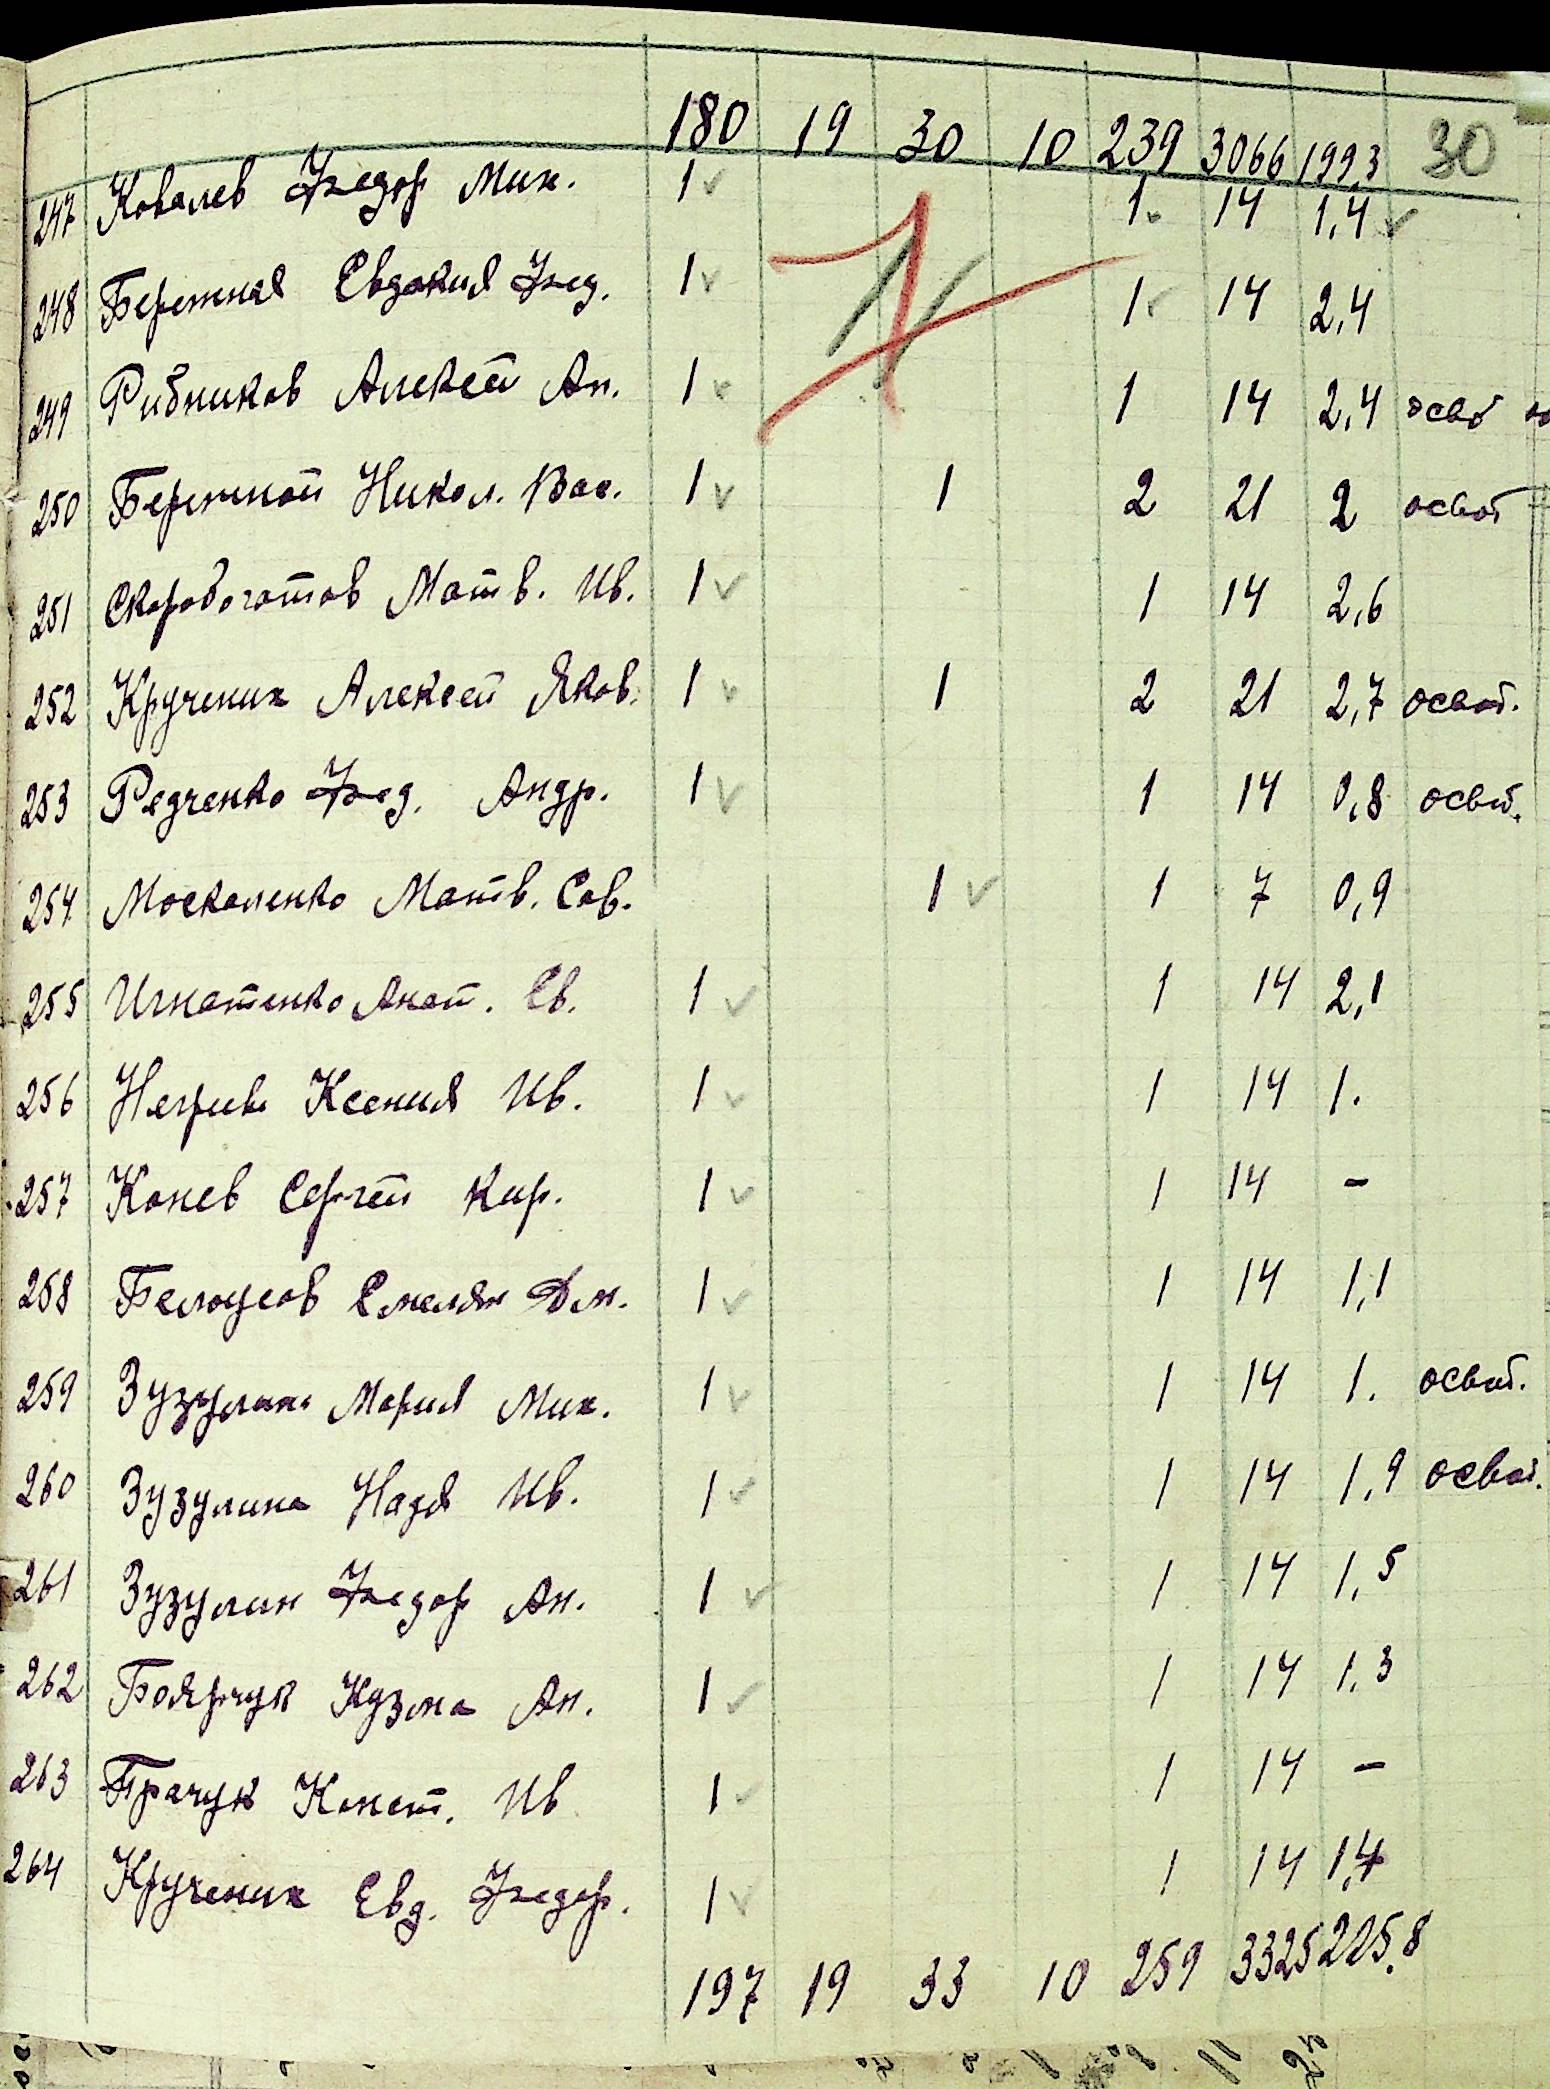 180 19 30 10 239 3066 199,3 30
247 Ковалев Федор Мих. 1 1 14 1,4
248 Бережная Евдокия Фед. 1 1 14 2,4
249 Рибников Алексей Ан. 1 1 14 2,4 освб
250 Бережной Никол. Вас. 1 1 2 21 2 освоб
251 Скоробогатов Матв. Ив. 1 1 14 2,6
252 Крученик Алексей Яков. 1 1 2 21 2,7 освоб.
253 Редченко Фед. Андр. 1 1 14 0,8 освоб.
254 Москаленко Матв. Сав. 1 1 7 0,9
255 Игнатенко Анат. Ев. 1 1 14 2,1
256 Ксения Ив. 1 1 14 1.
257 Конев Сергей Кир. 1 1 14 –
258 Белоусов Емелян Дм. 1 1 14 1,1
259 Зузулина Мария Мих. 1 1 14 1. освоб.
260 Зузулина Надя Ив. 1 1 14 1,9 освоб.
261 Зузулин Федор Ан. 1 1 14 1,5
262 Боярчук Кузма Ан. 1 1 14 1,3
263 Конст. Ив 1 1 14 –
264 Крученик Евд. Федор. 1 1 14 1,4
197 19 33 10 259 3325 225,8